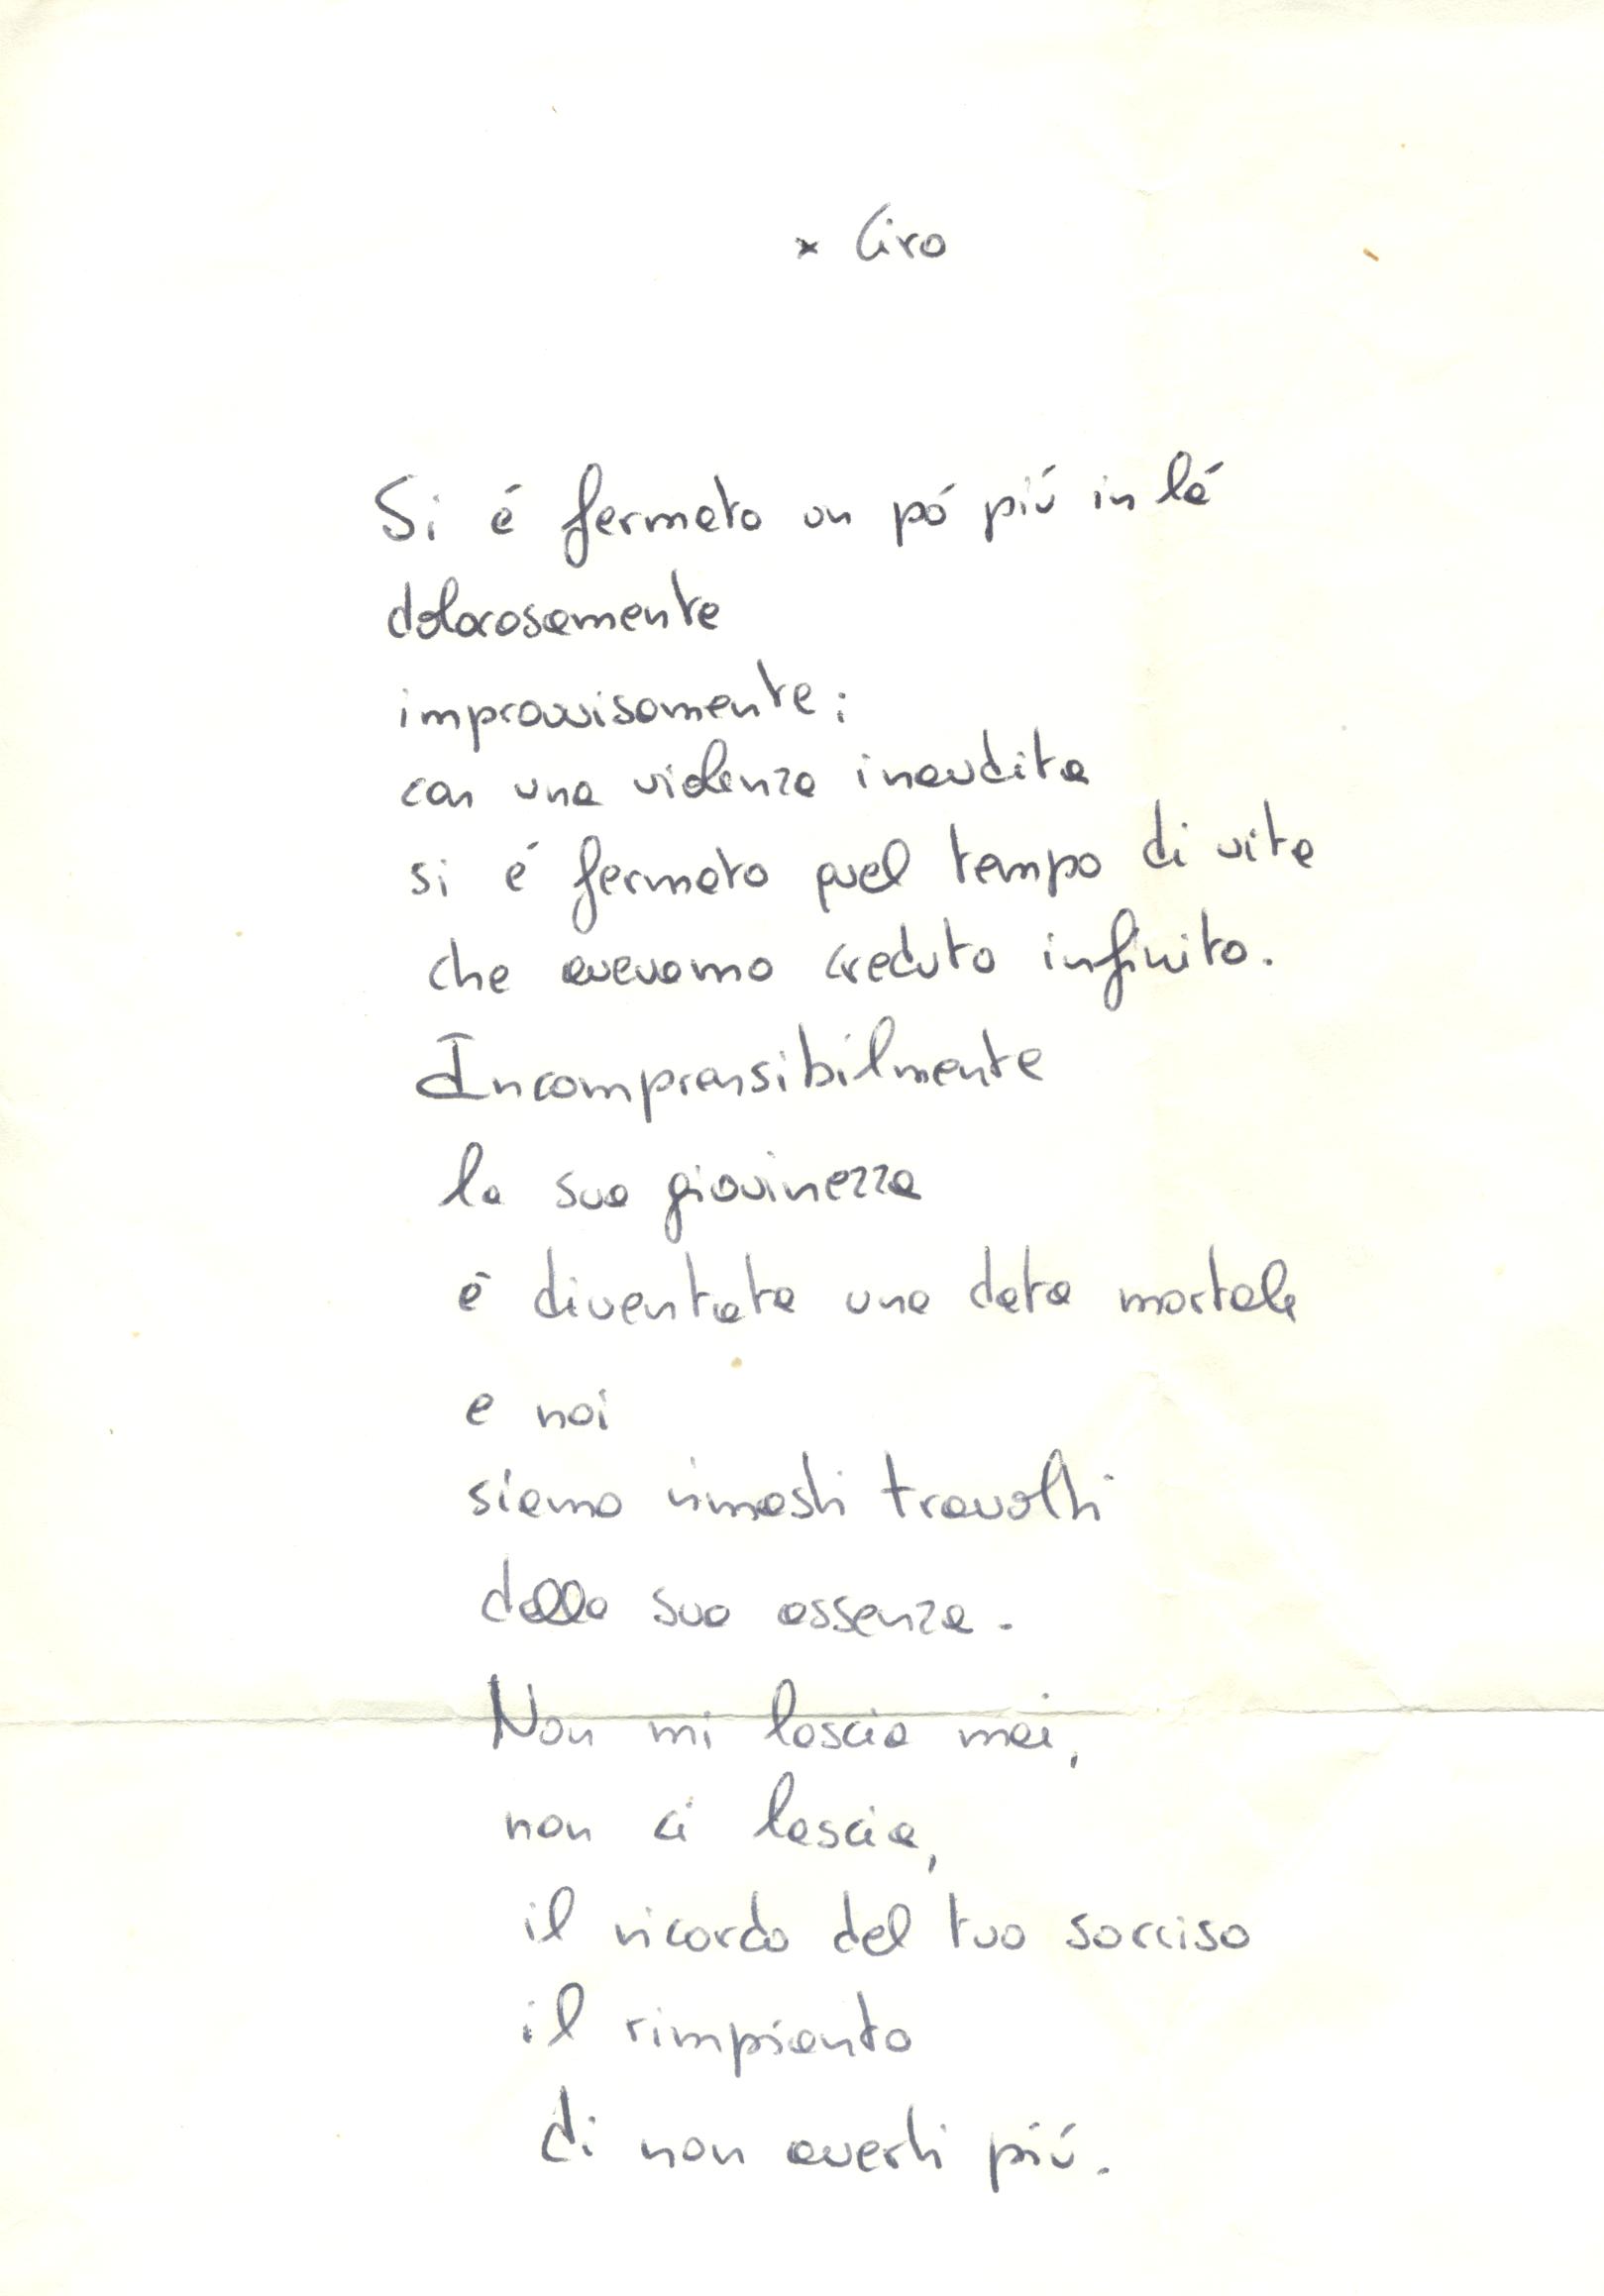 x Ciro
Si é fermato un pó piú in lá
dolorosamente
improvvisamente;
con una violenza inaudita
si é fermato quel tempo di vita
che avevamo creduto infinito.
Incomprensibilmente
la sua giovinezza
è diventata una data mortale
e noi
siamo rimasti travolti
dalla sua assenza.
Non mi lascia mai,
non ci lascia,
il ricordo del tuo sorriso
il rimpianto
di non averti piú.